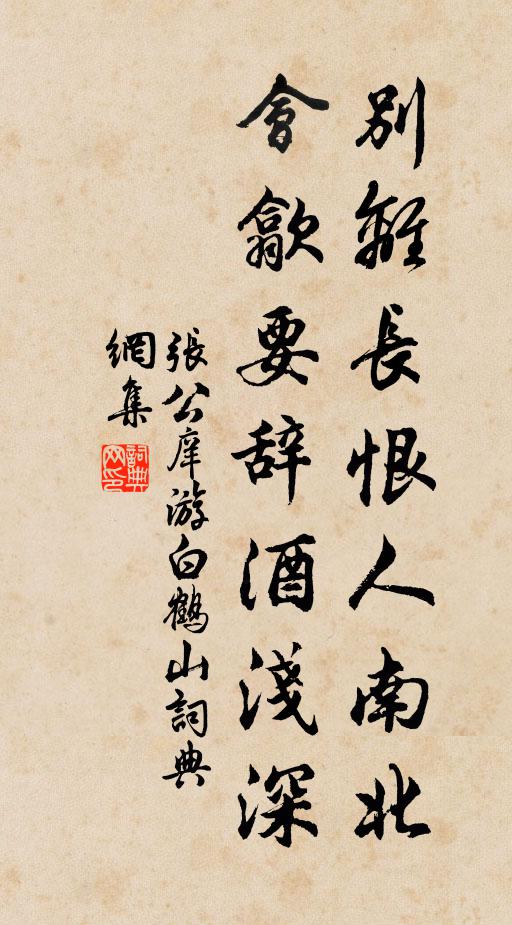 別離長恨人南北
會歙要辞酒淺深
張公庠游白鶴山詞典
網集
詞典
网印